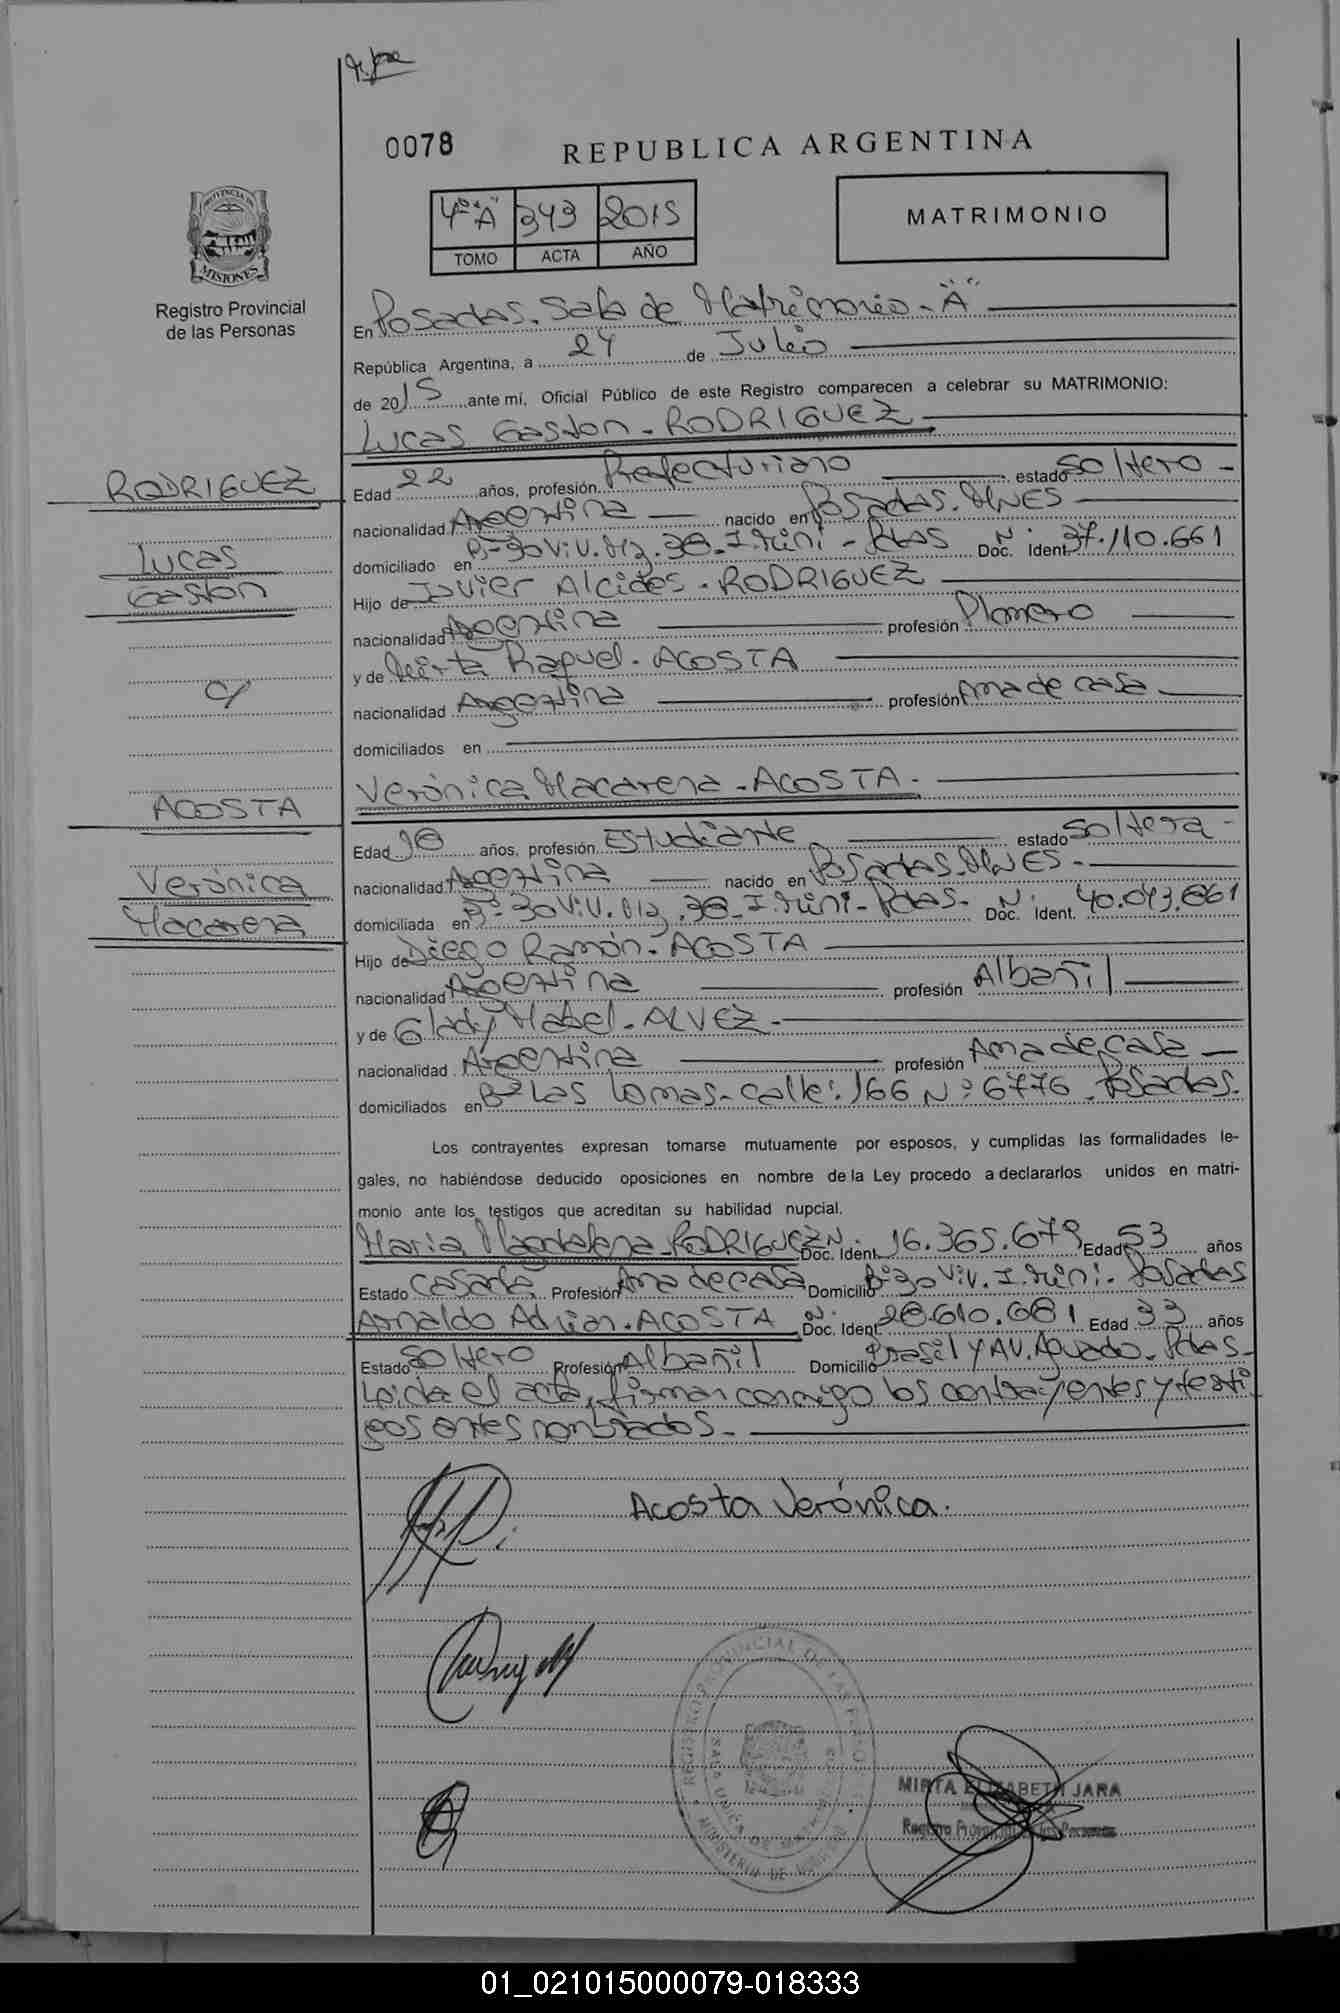 0078
REPUBLICA ARGENTINA
4º "A" 343 2015
TOMO ACTA AÑO
MATRIMONIO
PROVINCIA DE
MISIONES
Registro Provincial
de las Personas
En Posadas. Sala de Matrimonio - "A"
República Argentina, a 24 de Julio
de 2015 ante mí, Oficial Público de este Registro comparecen a celebrar su MATRIMONIO:
Lucas Gaston - RODRIGUEZ
RODRIGUEZ
Lucas
Gaston
c/
ACOSTA
Verónica
Macarena
Edad 22 años, profesión Prefecturiano estado Soltero -
nacionalidad Argentina nacido en Posadas. Mnes
domiciliado en Bº 30 Viv. Mz. 38 - I. Mini - Pdas Doc. N: Ident 37.110.661
Hijo de Javier Alcides - RODRIGUEZ
nacionalidad Argentina profesión Plomero
y de Mirta Raquel - ACOSTA
nacionalidad Argentina profesión Ama de casa
domiciliados en
Verónica Macarena - ACOSTA -
Edad 18 años, profesión Estudiante estado Soltera -
nacionalidad Argentina nacido en Posadas. Mnes -
domiciliada en Bº 30 Viv. Mz. 38 - I. Mini - Pdas - Doc. N: Ident. 40.043.861
Hijo de Diego Ramón - ACOSTA
nacionalidad Argentina profesión Albañil
y de Glady Mabel - ALVEZ -
nacionalidad Argentina profesión Ama de casa
domiciliados en Bº Las Lomas - calle: 166 Nº: 6776 . Posadas.
Los contrayentes expresan tomarse mutuamente por esposos, y cumplidas las formalidades le-
gales, no habiéndose deducido oposiciones en nombre de la Ley procedo a declararlos unidos en matri-
monio ante los testigos que acreditan su habilidad nupcial.
Maria Magdalena - RODRIGUEZ Doc. N: Ident. 16.365.679 Edad 53 años
Estado Casada Profesión Ama de casa Domicilio Bº 30 Viv. I. Mini - Posadas
Arnaldo Adrian - ACOSTA Doc. N: Ident. 28.610.081 Edad 33 años
Estado Soltero Profesión Albañil Domicilio Brasil y AV. Aguado - Pdas -
Leida el acta, firman conmigo los contrayentes y testi
gos antes nombrados -
Acosta Verónica.
REGISTRO PROVINCIAL DE LAS PERSONAS
SALA UNICA DE MATRIMONIOS
MINISTERIO DE GOBIERNO
MIRTA ELIZABETH JARA
Registro Provincial de las Personas
01_021015000079-018333